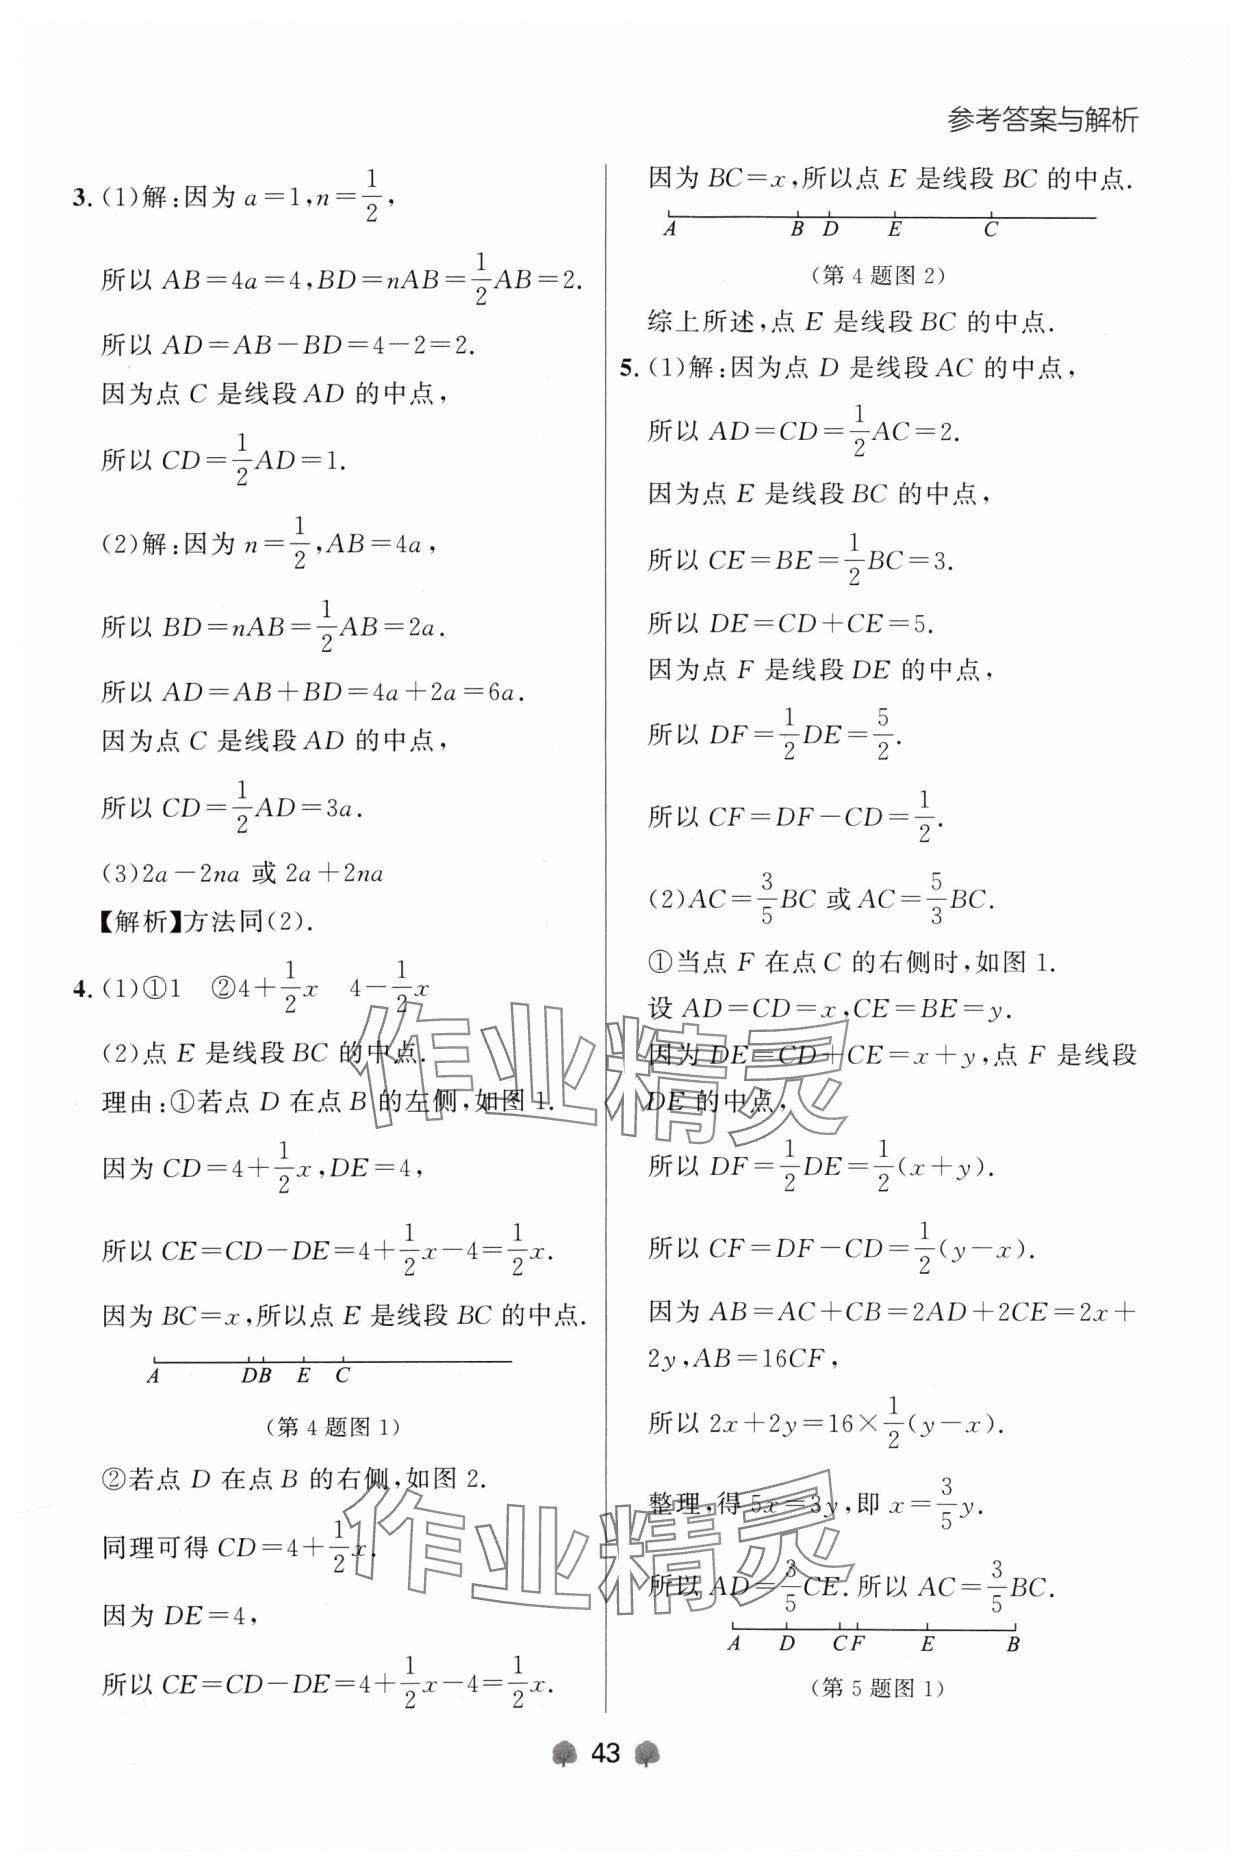 参考答案与解析
3. (1)解:因为 a=1,n=1/2,
所以 AB=4a=4,BD=nAB=1/2AB=2.
所以 AD=AB-BD=4-2=2.
因为点 C 是线段 AD 的中点,
所以 CD=1/2AD=1.
(2)解:因为 n=1/2,AB=4a,
所以 BD=nAB=1/2AB=2a.
所以 AD=AB+BD=4a+2a=6a.
因为点 C 是线段 AD 的中点,
所以 CD=1/2AD=3a.
(3)2a-2na 或 2a+2na
【解析】方法同(2).
4. (1)①1 ②4+1/2x 4-1/2x
(2)点 E 是线段 BC 的中点.
理由:①若点 D 在点 B 的左侧,如图 1.
因为 CD=4+1/2x,DE=4,
所以 CE=CD-DE=4+1/2x-4=1/2x.
因为 BC=x,所以点 E 是线段 BC 的中点.
A D B E C
(第 4 题图 1)
②若点 D 在点 B 的右侧,如图 2.
同理可得 CD=4+1/2x.
因为 DE=4,
所以 CE=CD-DE=4+1/2x-4=1/2x.
因为 BC=x,所以点 E 是线段 BC 的中点.
A B D E C
(第 4 题图 2)
综上所述,点 E 是线段 BC 的中点.
5. (1)解:因为点 D 是线段 AC 的中点,
所以 AD=CD=1/2AC=2.
因为点 E 是线段 BC 的中点,
所以 CE=BE=1/2BC=3.
所以 DE=CD+CE=5.
因为点 F 是线段 DE 的中点,
所以 DF=1/2DE=5/2.
所以 CF=DF-CD=1/2.
(2)AC=3/5BC 或 AC=5/3BC.
①当点 F 在点 C 的右侧时,如图 1.
设 AD=CD=x,CE=BE=y.
因为 DE=CD+CE=x+y,点 F 是线段
DE 的中点,
所以 DF=1/2DE=1/2(x+y).
所以 CF=DF-CD=1/2(y-x).
因为 AB=AC+CB=2AD+2CE=2x+
2y,AB=16CF,
所以 2x+2y=16×1/2(y-x).
整理,得 5x=3y,即 x=3/5y.
所以 AD=3/5CE.所以 AC=3/5BC.
A D C F E B
(第 5 题图 1)
作业精灵
作业精灵
43